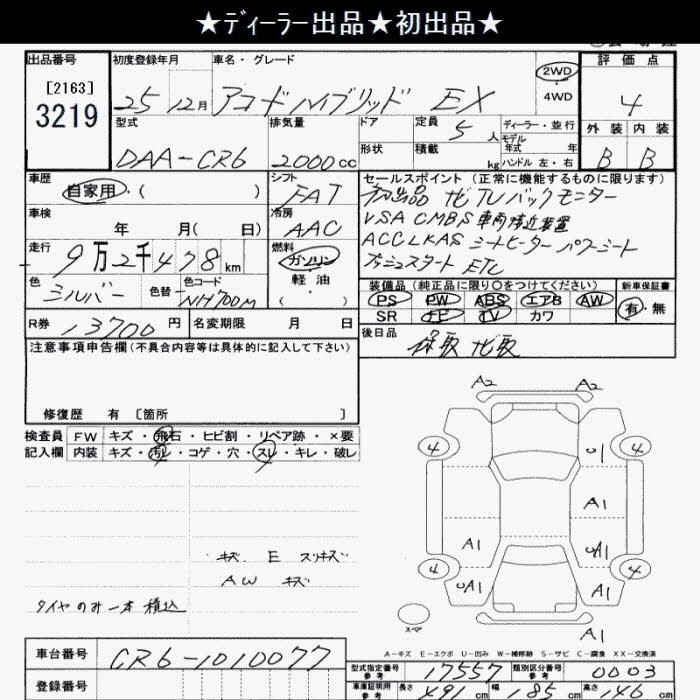 ★ディーラー出品★初出品★
出品番号 初度登録年月 車名・グレード 2WD 評価点
[2163] 25 12月 アコードハイブリッド EX 4WD 4
3219
型式 排気量 ドア 定員 5人 ディーラー・並行 外装 内装
モデル年式 年
DAA-CR6 2000cc 形状 積載 kg ハンドル 左・右 B B
車歴 シフト セールスポイント (正常に機能するものに限ります)
自家用・( ) FAT 初出品 ナビTVバックモニター
車検 冷房 VSA CMBS 車両接近装置
年 月( 日) AAC ACC LKAS シートヒーター パワーシート
走行 燃料 プッシュスタート ETC
9万2千478km ガソリン
色 色替 色コード 軽油・ 装備品 (純正品に限り○をつけてください) 新車保証書
シルバー NH700M ( ) PS PW ABS エアB AW 有・無
R券 13700円 名変期限 月 日 SR TV カワ
後日品 保取 ナビ取
注意事項申告欄(不具合内容等は具体的に記入して下さい)
修復歴 有 [箇所 ]
A2 A2
検査員 FW キズ・飛石・ヒビ割・リペア跡・×要
記入欄 内装 キズ・汚レ・コゲ・穴・スレ・キレ・破レ
4 U1 4
A1
A1 UA1
キズ E スリキズ
AW キズ
4 UA1 A1 4
タイヤのみ一本積込
スペア A1
A-キズ E-エクボ U-凹み W-補修跡 S-サビ C-腐食 XX-交換済
車台番号 CR6-1010077
型式指定番号 参考 17557 類別区分番号 参考 0003
登録番号 車庫証明用 参考 長さ 491cm 幅 185cm 高さ 146cm